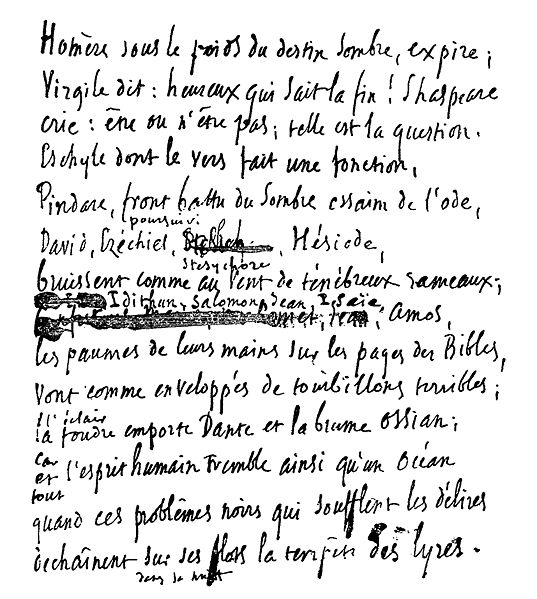 Homère sous le poids du destin sombre, expire ;
Virgile dit : heureux qui sait la fin ! Shaspeare
crie : être ou n'être pas ; telle est la question.
Eschyle dont le vers fait une fonction,
Pindare, front battu du sombre essaim de l'ode,
poursuivi
David, Ezéchiel, Hésiode,
Stesychore
bruissent comme au vent de ténébreux rameaux ;
Idithun, Salomon, Jean, Isaïe
Amos,
les paumes de leurs mains sur les pages des Bibles,
vont comme enveloppés de tourbillons terribles ;
l'éclair
la foudre emporte Dante et la brume Ossian ;
car
et l'esprit humain tremble ainsi qu'un Océan
tout
quand ces problèmes noirs qui soufflent les délires
déchaînent sur ses flots la tempête des lyres.
dans sa nuit